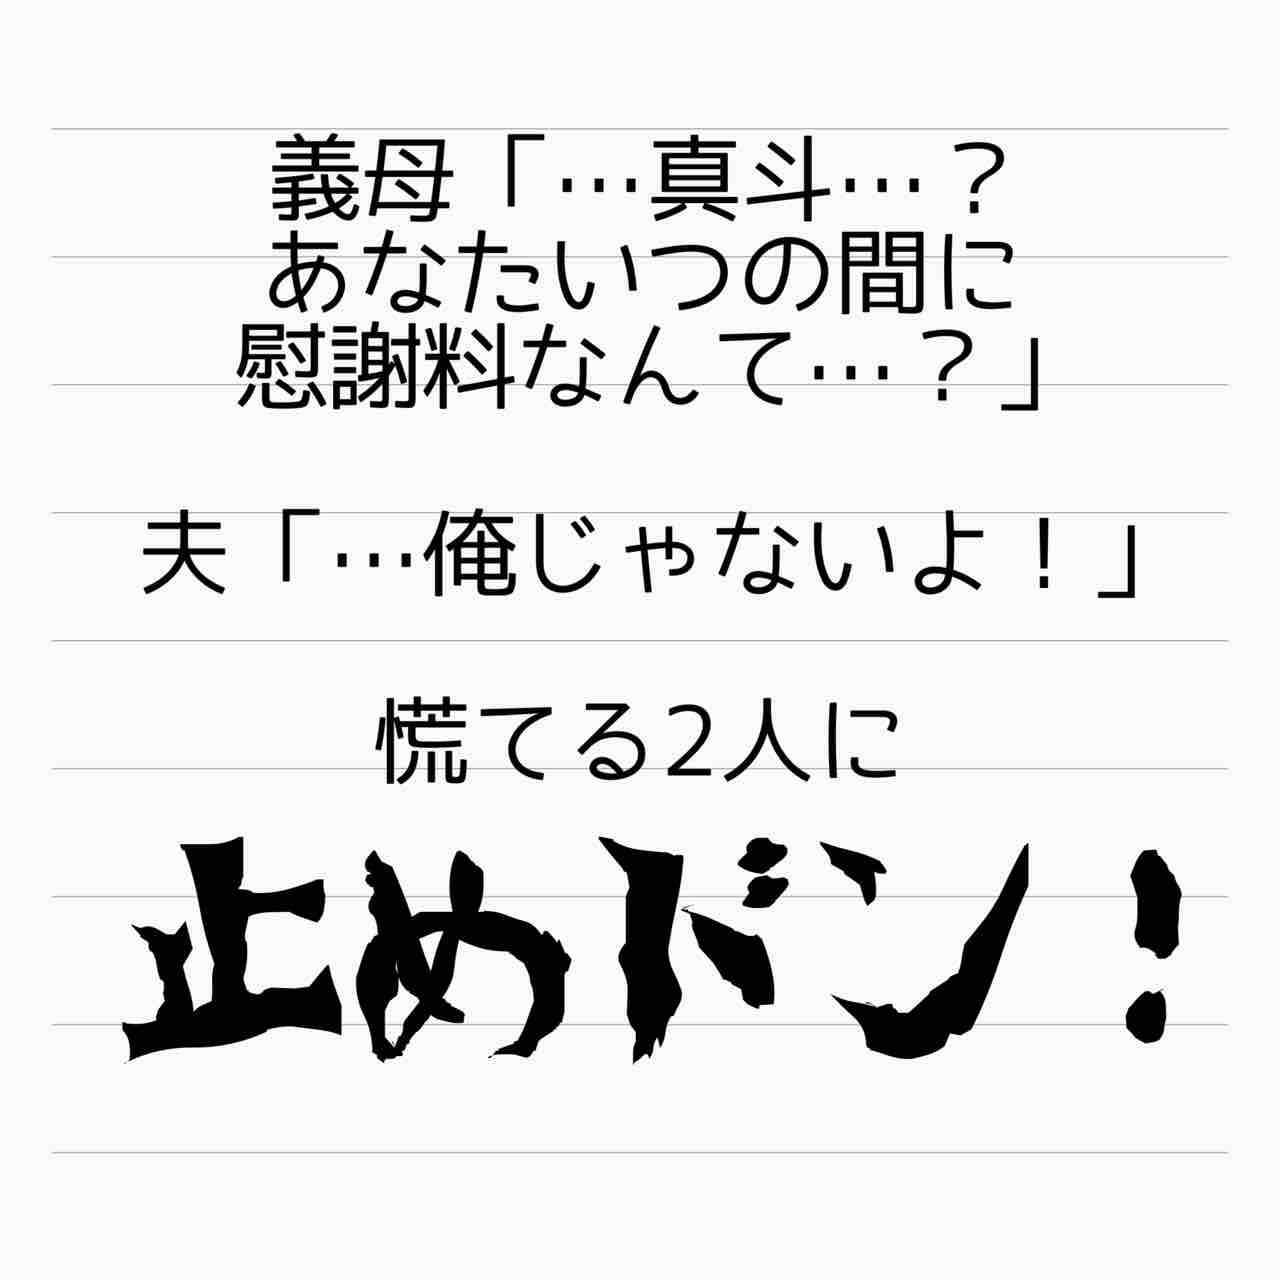 義母「…真斗…？
あなたいつの間に
慰謝料なんて…？」
夫「…俺じゃないよ！」
慌てる2人に
止めドン！